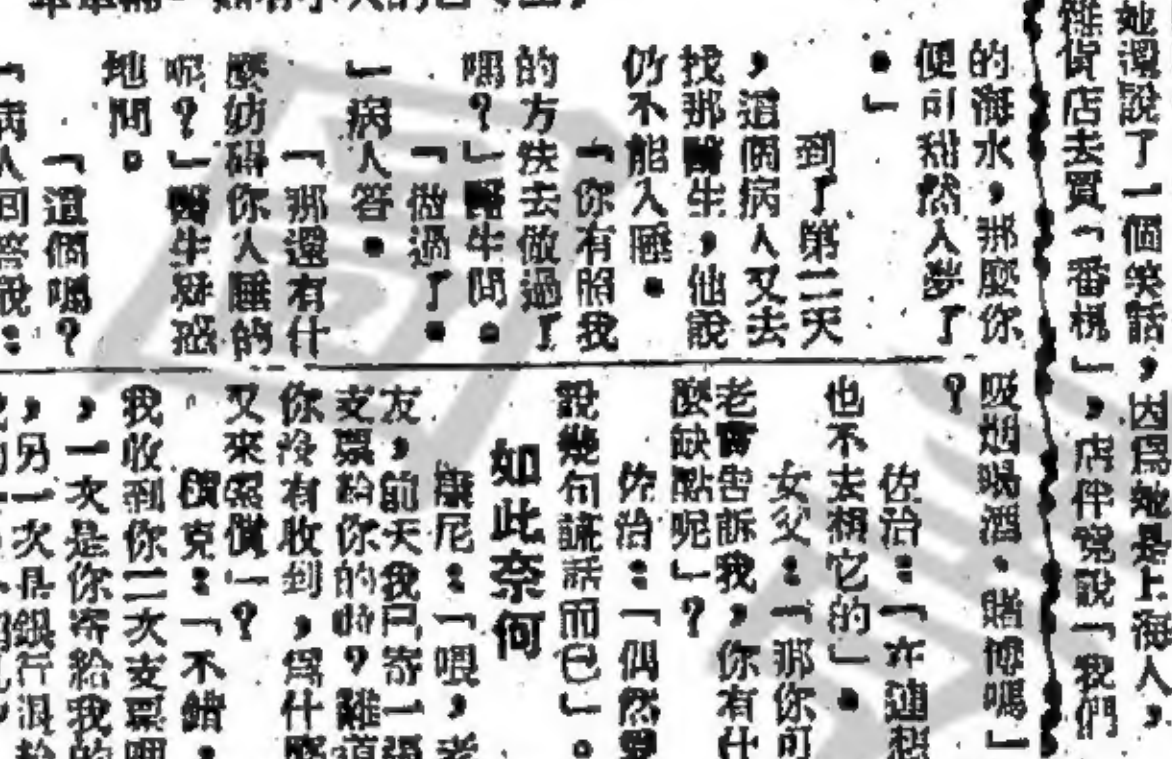 她還說了一個笑話，因爲她是上海人，
雜貨店去買「番梘」，店伴竟說「我們
的海水，那麼你
便可酣然入夢了
。」
到了第二天
，這個病人又去
找那醫生，他說
仍不能入睡。
「你有照我
的方法去做過了
嗎？」醫生問。
「做過了。
」病人答。
「那還有什
麼妨碍你入睡的
呢？」醫生
地問。
「這個嗎？
」病人回答說：
吸烟喝酒。賭博嗎」
？
佐治：「亦連想
也不去想它的」。
女父：「那你可
老實告訴我，你有什
麼缺點呢」？
佐治：「偶然
說幾句謊話而已」。
如此奈何
康尼：「喂，老
友，前天我已寄一張
支票給你的喲？難道
你沒有收到，爲什麼
又來
克：「不錯，
我收到你二次支票
，一次是你寄給我的
，另一次是銀行退給